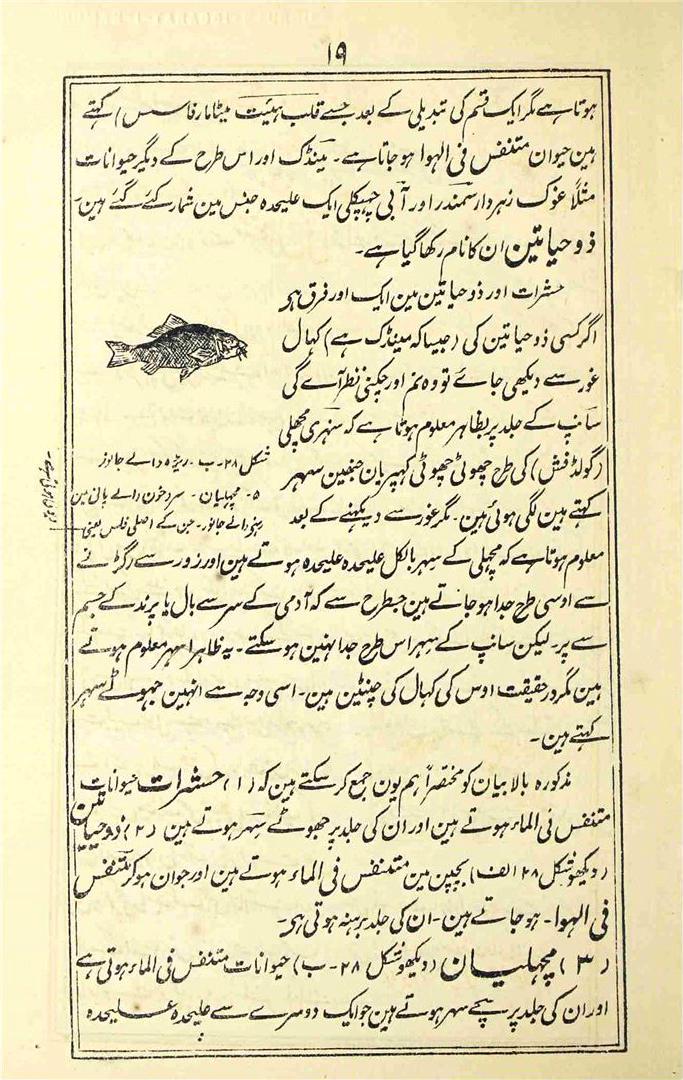 ۱۹
ہوتا ہے مگر ایک قسم کی تبدیلی کے بعد جسے قلب ہیئت میٹامارفاسس) کہتے
ہین حیوان متنفس فی الہوا ہو جاتا ہے۔ مینڈک اور اس طرح کے دیگر حیوانات
مثلاً غوک زہردار سمندر اور آبی چھپکلی ایک علیحدہ جنس مین شمار کئے گئے ہین۔
ذو حیاتین ان کا نام رکھا گیا ہے۔
حشرات اور ذو حیاتین مین ایک اور فرق ہے
اگر کسی ذو حیاتین کی (جیسا کہ مینڈک ہے) کہال
غور سے دیکھی جائے تو وہ نم اور چکنی نظر آے گی
سانپ کے جلد پر بظاہر معلوم ہوتا ہے کہ سنہری مچھلی
(گولڈ فش) کی طرح چھوٹی چھوٹی کہپریان جنہین سہر
کہتے ہین لگی ہوئی ہین۔ مگر غور سے دیکہنے کے بعد
شکل ۲۸۔ ب۔ ریڑہ والے جانور
۵۔ مچہلیان۔ سرد خون والے پانی مین
رہنے والے جانور۔ جن کے اصلی فلس یعنی
معلوم ہوتا ہے کہ مچہلی کے سہر بالکل علیحدہ علیحدہ ہوتے ہین اور زور سے رگڑنے
سے اوسی طرح جدا ہو جاتے ہین جسطرح سے کہ آدمی کے سر سے بال یا پرند کے جسم
سے پر۔ لیکن سانپ کے سہر اس طرح جدا نہین ہو سکتے۔ یہ ظاہرا سہر معلوم ہوتے
ہین مگر درحقیقت اوس کی کہال کی چنٹین ہین۔ اسی وجہ سے انہین جہوٹے سہر
کہتے ہین۔
مذکورہ بالا بیان کو مختصراً ہم یون جمع کر سکتے ہین کہ (۱) حشرات حیوانات
متنفس فی الماء ہوتے ہین اور ان کی جلد پر جھوٹے سہر ہوتے ہین (۲) ذو حیاتین
(دیکھو شکل ۲۸ الف) بچپن مین متنفس فی الماء ہوتے ہین اور جوان ہو کر متنفس
فی الہوا۔ ہو جاتے ہین۔ ان کی جلد برہنہ ہوتی ہے۔
(۳) مچہلیان (دیکھو شکل ۲۸۔ ب) حیوانات متنفس فی الماء ہوتی ہے
اور ان کی جلد پر سچے سہر ہوتے ہین جو ایک دوسرے سے علیحدہ علیحدہ